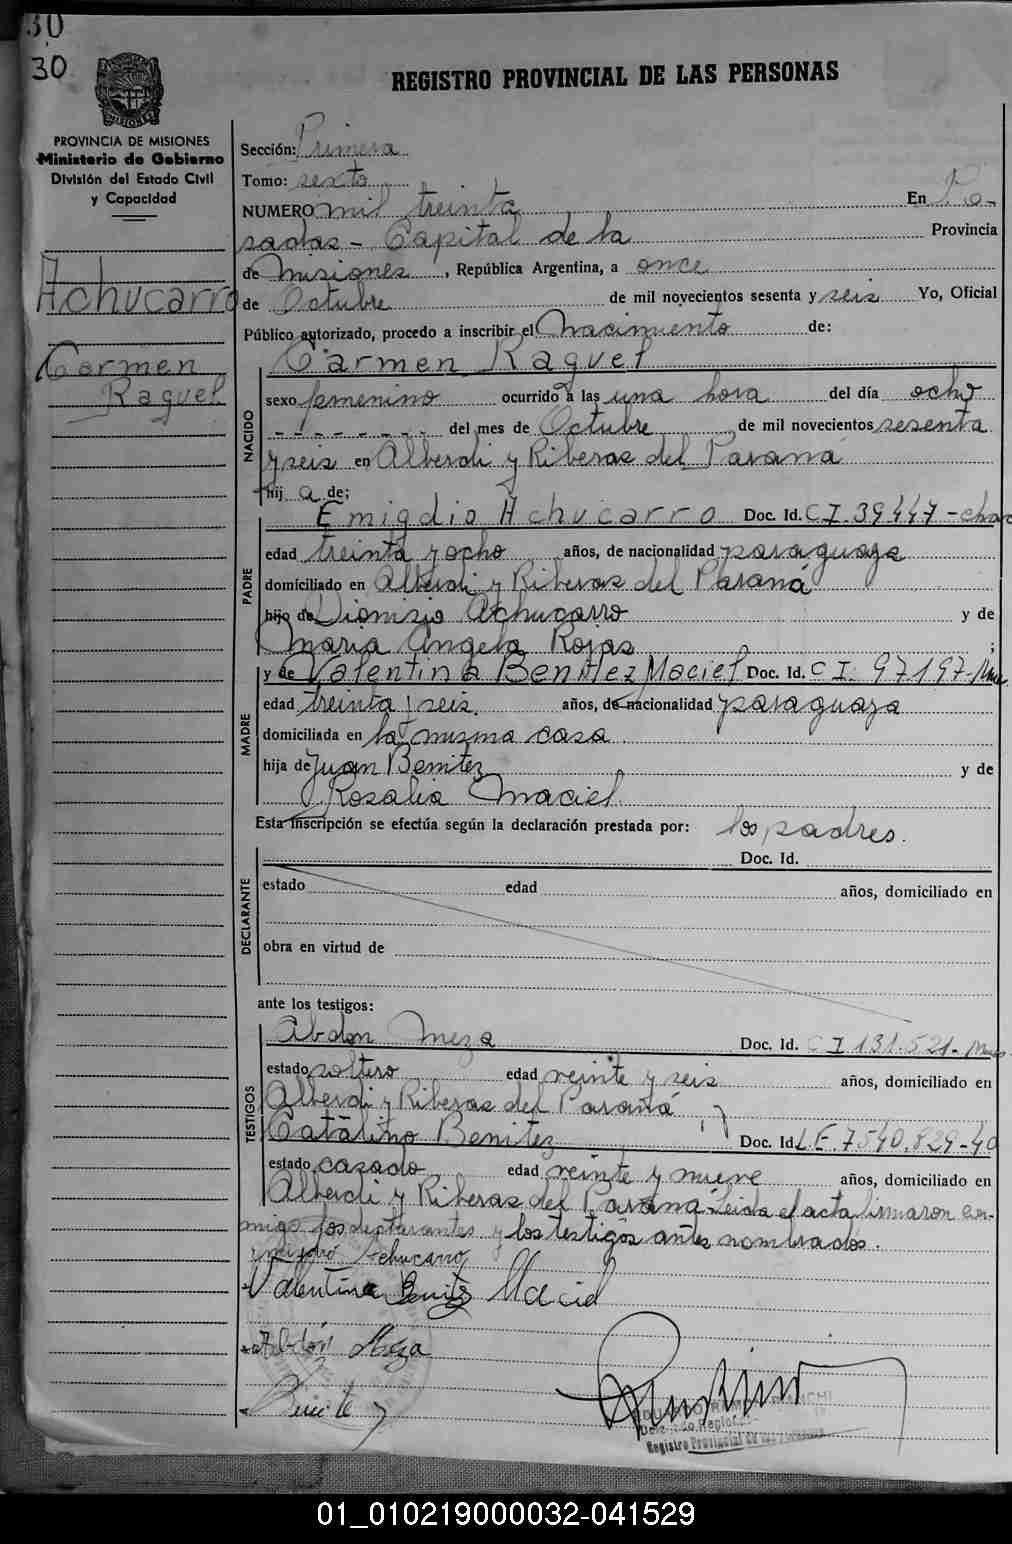 30
30
REGISTRO PROVINCIAL DE LAS PERSONAS
MISIONES
PROVINCIA DE MISIONES
Ministerio de Gobierno
División del Estado Civil
y Capacidad
Achucarro
Carmen
Raquel
Sección: Primera
Tomo: sexto
NUMERO mil treinta En Po-
sadas - Capital de la Provincia
de Misiones, República Argentina, a once
de Octubre de mil novecientos sesenta y seis Yo, Oficial
Público autorizado, procedo a inscribir el Nacimiento de:
Carmen Raquel
NACIDO
sexo femenino ocurrido a las una hora del día ocho
- - - - - - - - del mes de Octubre de mil novecientos sesenta
y seis en Alberdi y Riberas del Paraná
hij a de;
PADRE
Emigdio Achucarro Doc. Id. C I. 39447 - chac
edad treinta y ocho años, de nacionalidad paraguaya
domiciliado en Alberdi y Riberas del Paraná
hijo de Dionizio Achucarro y de
Maria Angela Rojas ;
MADRE
y de Valentina Benitez Maciel Doc. Id. C I. 97197-
edad treinta y seis. años, de nacionalidad paraguaya
domiciliada en la misma casa
hija de Juan Benitez y de
Rosalia Maciel.
Esta inscripción se efectúa según la declaración prestada por: los padres.
DECLARANTE
Doc. Id.
estado edad años, domiciliado en
obra en virtud de
ante los testigos:
TESTIGOS
Abdon Meza Doc. Id. C I 131.521-
estado soltero edad veinte y seis años, domiciliado en
Alberdi y Riberas del Paraná y
Catalino Benitez Doc. Id. L.E. 7540.829-40
estado casado edad veinte y nueve años, domiciliado en
Alberdi y Riberas del Paraná. Leida el acta firmaron con-
migo los declarantes y los testigos antes nombrados.
Achucarro
Valentina Benitez Maciel
Abdón Meza
Registro Provincial de las Personas
01_010219000032-041529